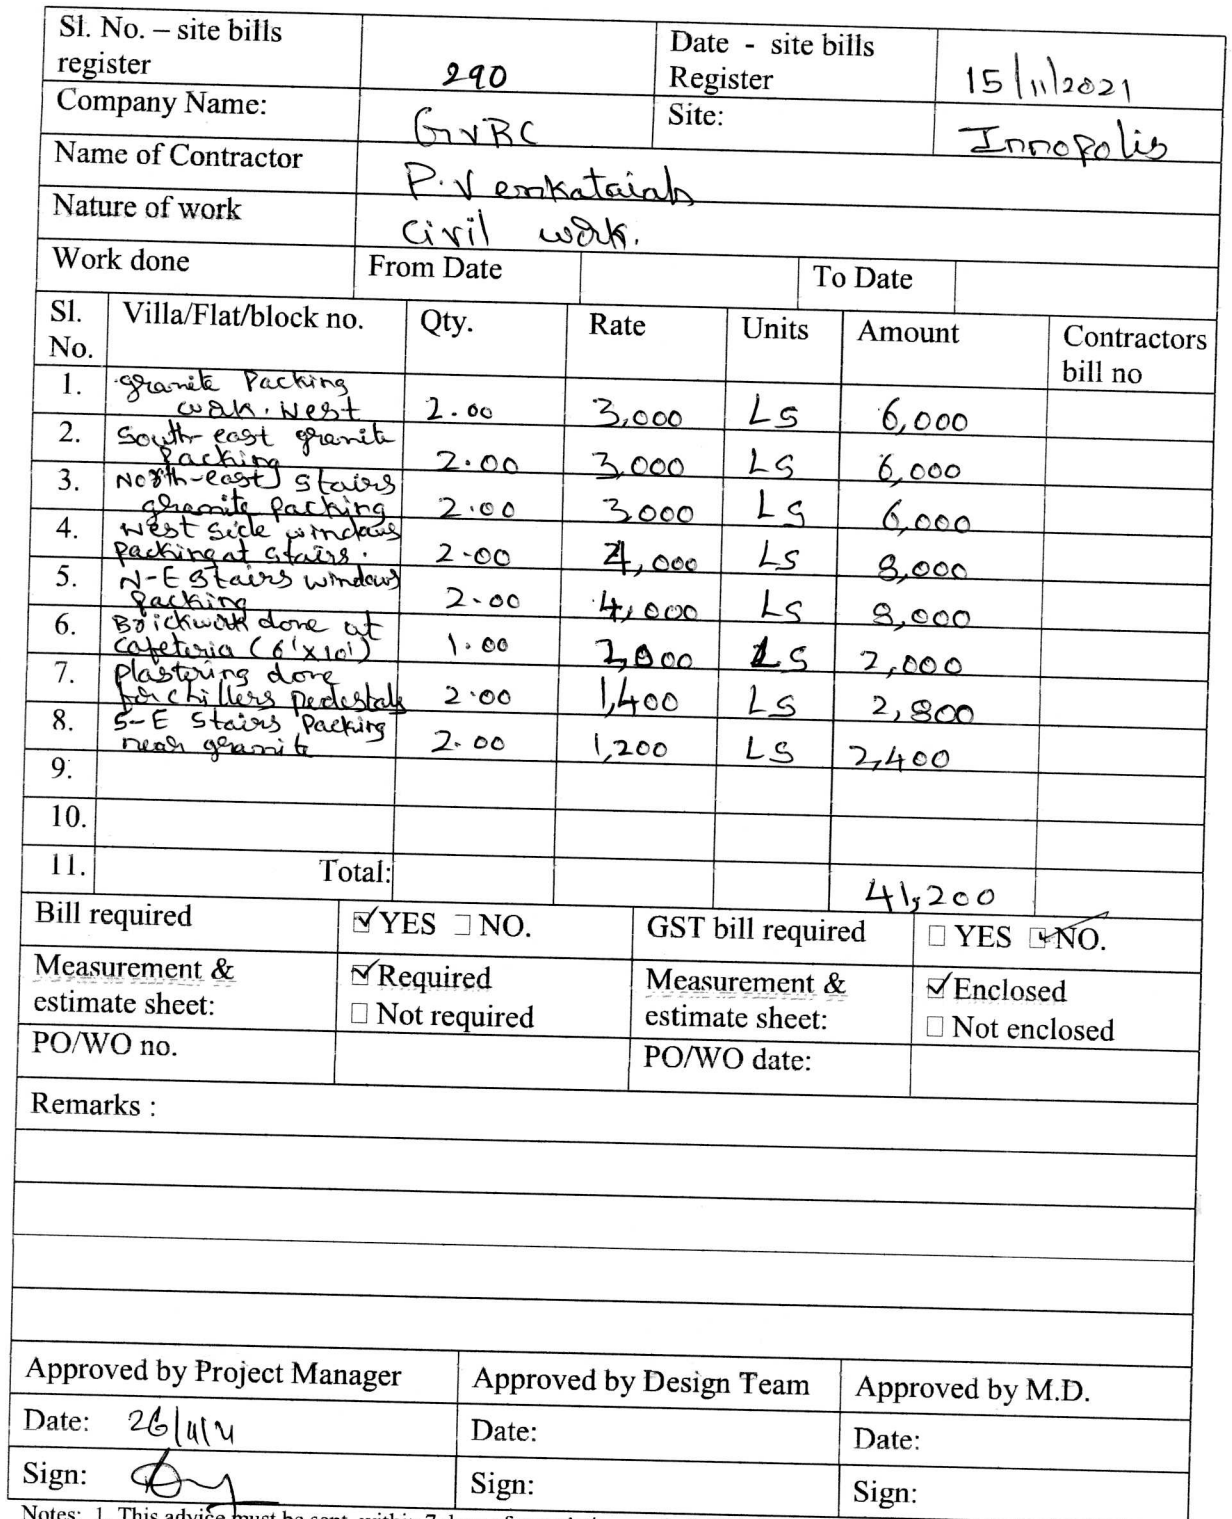 Sl. No. – site bills register 290 Date - site bills Register 15/11/2021
Company Name: GVRC Site: Innopolis
Name of Contractor P. Venkataiah
Nature of work Civil work.
Work done From Date To Date
Sl. No. Villa/Flat/block no. Qty. Rate Units Amount Contractors bill no
1. granite Packing work. West 2.00 3,000 LS 6,000
2. South-east granite Packing 2.00 3,000 LS 6,000
3. North-east stairs granite packing 2.00 3,000 LS 6,000
4. West side windows packing at stairs. 2.00 4,000 LS 8,000
5. N-E Stairs windows packing 2.00 4,000 LS 8,000
6. Brickwork done at cafeteria (6'x10') 1.00 2,000 LS 2,000
7. plastering done for chillers pedestals 2.00 1,400 LS 2,800
8. S-E Stairs Packing near granite 2.00 1,200 LS 2,400
9.
10.
11. Total: 41,200
Bill required ☑ YES ☐ NO. GST bill required ☐ YES ☑ NO.
Measurement & estimate sheet: ☑ Required ☐ Not required Measurement & estimate sheet: ☑ Enclosed ☐ Not enclosed
PO/WO no. PO/WO date:
Remarks :
Approved by Project Manager Approved by Design Team Approved by M.D.
Date: 26/11/21 Date: Date:
Sign: Sign: Sign:
Notes: 1. This advice must be sent within 7 days